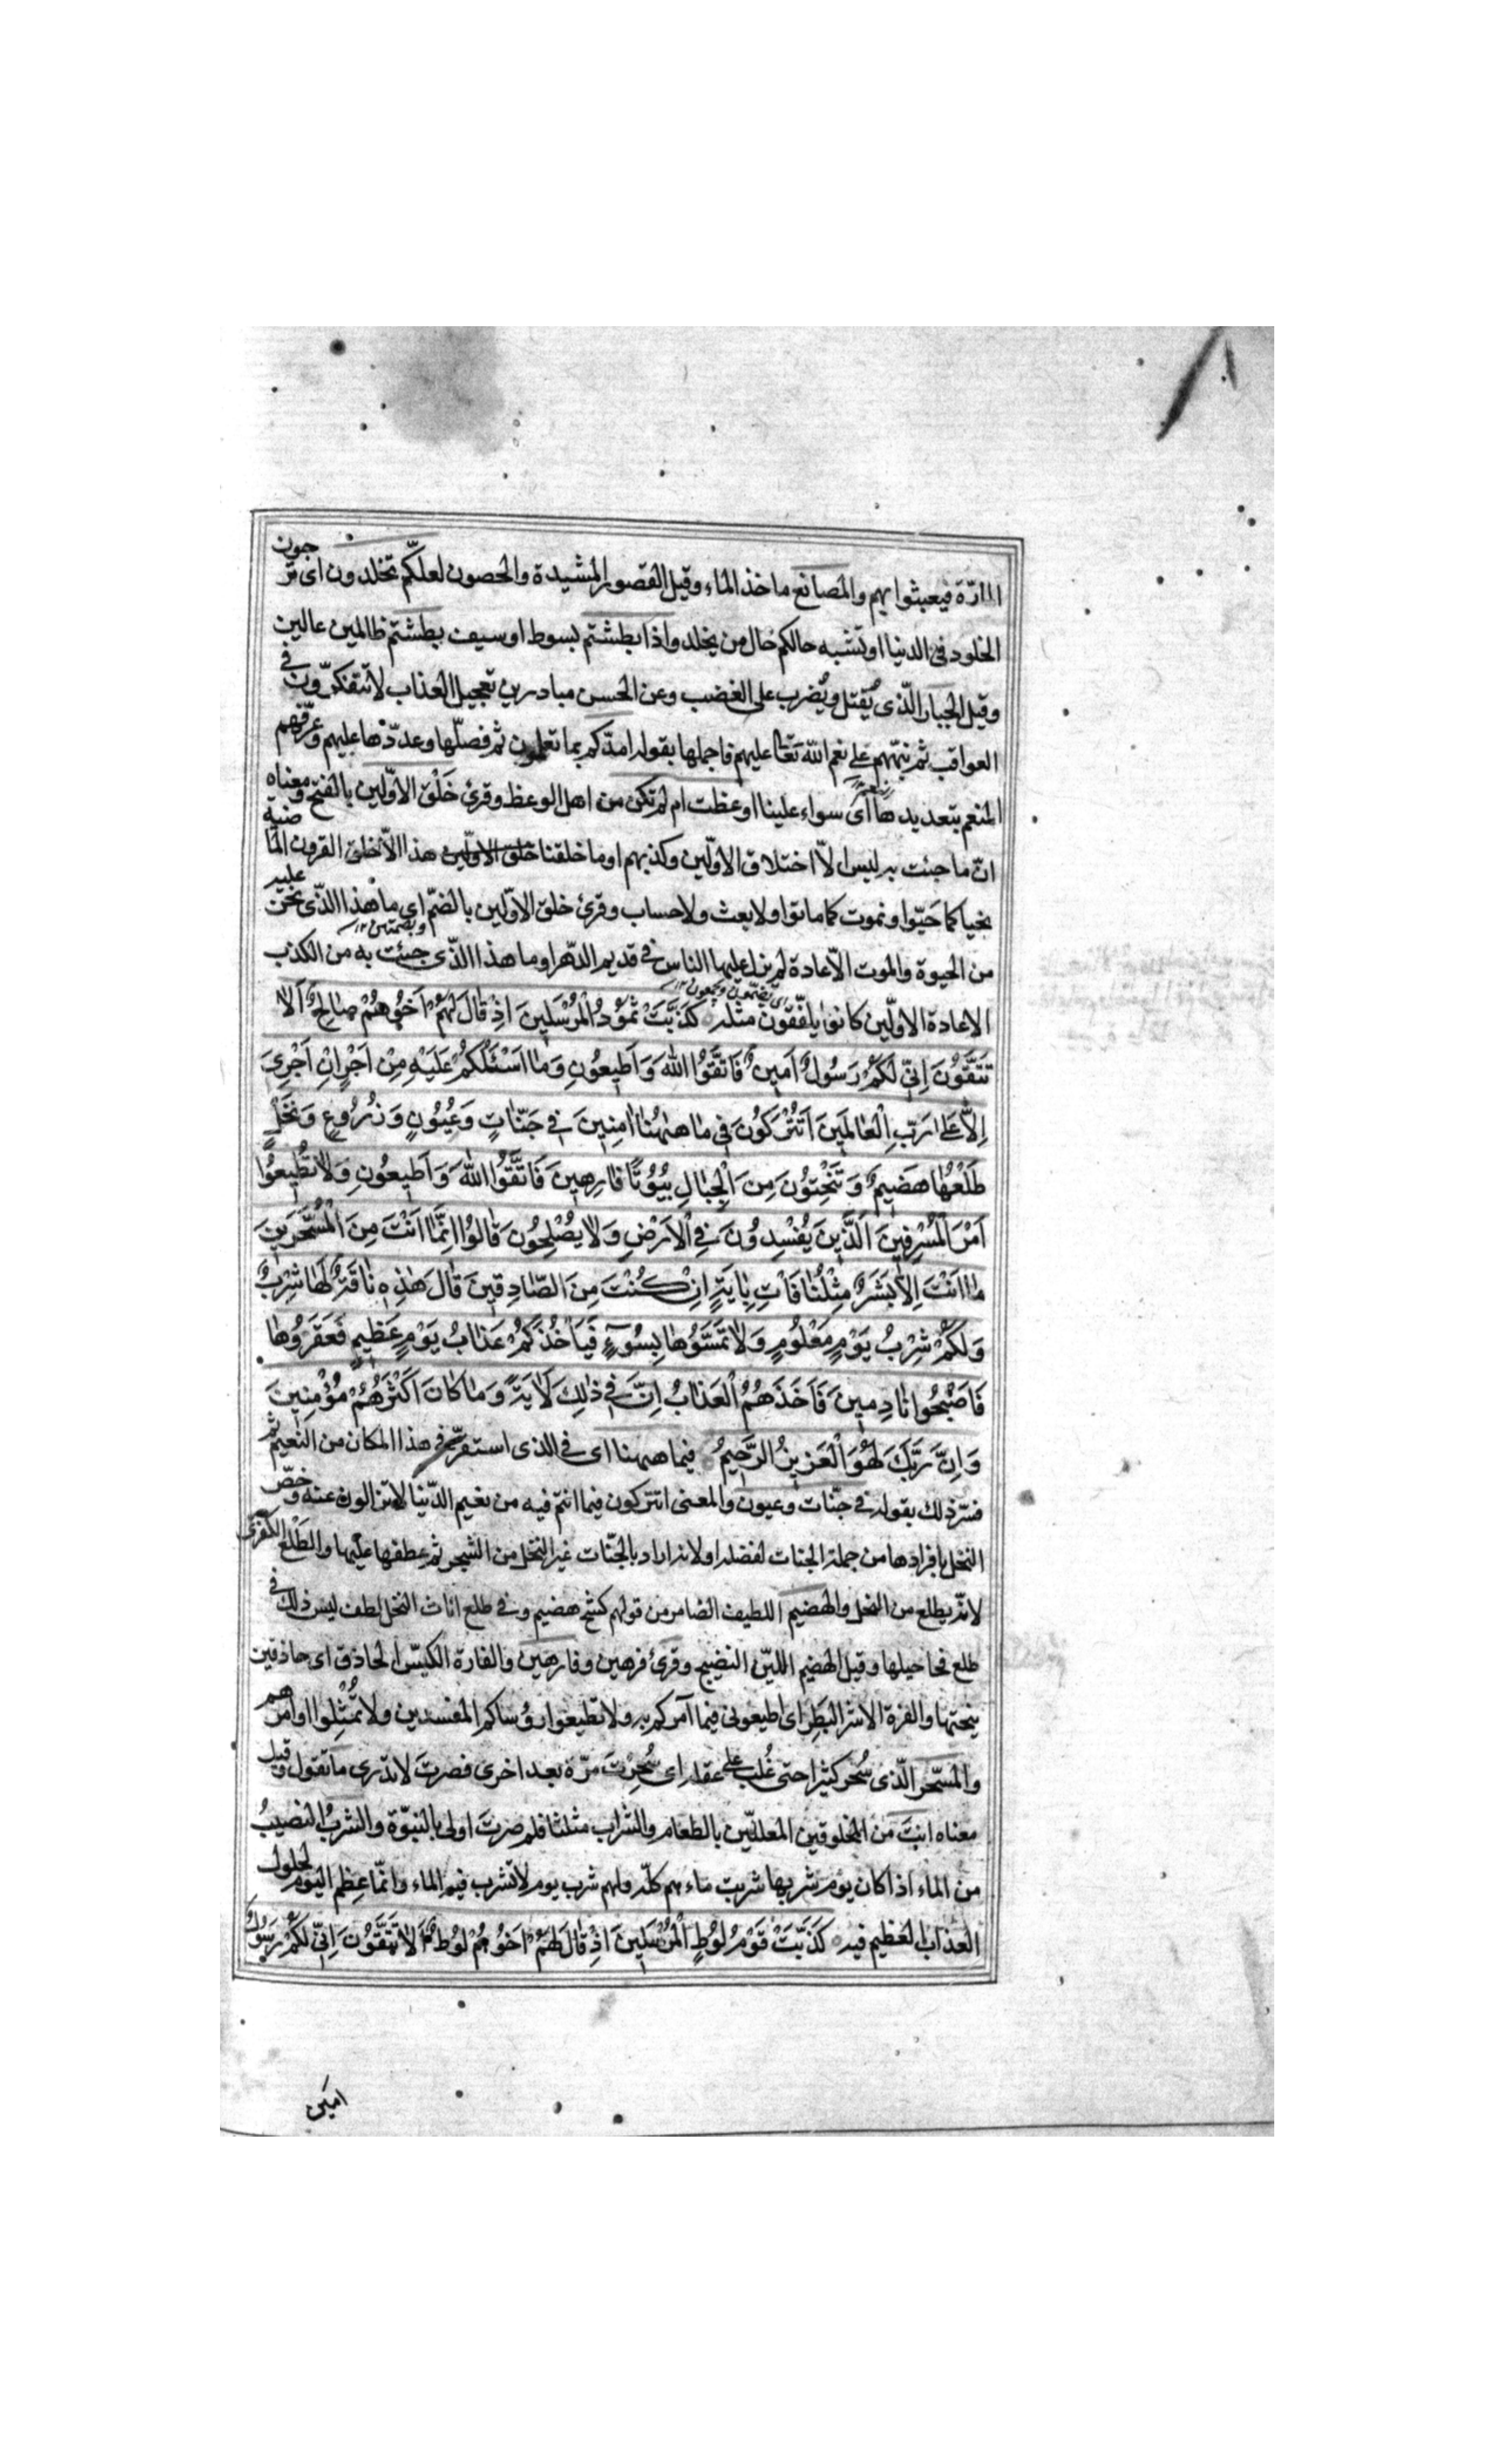 المارّة فيعبثوا بهم والمصانع ماخذ الماء وقيل القصور المشيدة والحصون لعلّكم تخلدون اى ترجون
الخلود فى الدنيا او تشبه حالكم حال من يخلد واذا بطشتم بسوط او سيف بطشتم ظالمين عالين
وقيل الجبار الّذى يُقتل ويُضرب على الغضب وعن الحسن مبادرين تعجيل العذاب لا تتفكّرون فى
العواقب ثم نبّههم على نعم الله تعالى عليهم فاجملها بقوله امدّكم بما تعلمون ثم فصّلها وعدّدها عليهم وعرّفهم
المنعم بتعديدها اى سواء علينا اوعظت ام لم تكن من اهل الوعظ وقرئ خَلْق الاوّلين بالفتح ومعناه
انّ ما جئت به ليس الاّ اختلاق الاوّلين وكذبهم او ما خلقنا خلق الاوّلين هذا الاّ خلق القرون الماضية
نحيا كما حَيّوا ونموت كما ماتوا ولا بعث ولا حساب وقرئ خلق الاوّلين بالضمّ اى ما هذا الذّى نحن عليه
وبضمتين ١٢
من الحيوة والموت الاّ عادة لم يزل عليها الناس فى قديم الدّهر او ما هذا الذّى جئت به من الكذب
اى يضمّون ويجمعون ١٢
الا عادة الاوّلين كانوا يلفّقون مثله كَذَّبَتْ ثَمُودُ الْمُرْسَلِينَ اِذْ قَالَ لَهُمْ اَخُوهُمْ صَالِحٌ اَلَا
تَتَّقُونَ اِنّى لَكُمْ رَسُولٌ اَمِينٌ فَاتَّقُوا اللهَ وَاَطِيعُونِ وَمَا اَسْئَلُكُمْ عَلَيْهِ مِنْ اَجْرٍ اِنْ اَجْرِىَ
اِلاَّ عَلَى رَبِّ الْعَالَمِينَ اَتُتْرَكُونَ فِى مَا هٰهُنَا اٰمِنِينَ فِى جَنّاتٍ وَعُيُونٍ وَزُرُوعٍ وَنَخْلٍ
طَلْعُهَا هَضِيمٌ وَتَنْحِتُونَ مِنَ الْجِبَالِ بُيُوتًا فَارِهِينَ فَاتَّقُوا اللهَ وَاَطِيعُونِ وَلَا تُطِيعُوا
اَمْرَ الْمُسْرِفِينَ اَلَّذِينَ يُفْسِدُونَ فِى الْاَرْضِ وَلَا يُصْلِحُونَ قَالُوا اِنَّمَا اَنْتَ مِنَ الْمُسَحَّرِينَ
مَا اَنْتَ اِلاَّ بَشَرٌ مِثْلُنَا فَأْتِ بِاٰيَةٍ اِنْ كُنْتَ مِنَ الصَّادِقِينَ قَالَ هٰذِهِ نَاقَةٌ لَهَا شِرْبٌ
وَلَكُمْ شِرْبُ يَوْمٍ مَعْلُومٍ وَلَا تَمَسُّوهَا بِسُوءٍ فَيَأْخُذَكُمْ عَذَابُ يَوْمٍ عَظِيمٍ فَعَقَرُوهَا
فَاَصْبَحُوا نَادِمِينَ فَاَخَذَهُمُ الْعَذَابُ اِنَّ فِى ذٰلِكَ لَاٰيَةً وَمَا كَانَ اَكْثَرُهُمْ مُؤْمِنِينَ
وَاِنَّ رَبَّكَ لَهُوَ الْعَزِيزُ الرَّحِيمُ فيما ههنا اى فى الذى استقرّ فى هذا المكان من النعيم ثم
فسّر ذلك بقوله فى جنّات وعيون والمعنى اتتركون فيما انتم فيه من نعيم الدّنيا لا تزالون عنه وخصّ
النخل بافرادها من جملة الجنات لفضله او لانه اراد بالجنّات غير النخل من الشجر ثم عطفها عليها والطّلع الكفرّى
لانّه يطلع من النخل والهضيم اللطيف الضامر من قولهم كشح هضيم وفى طلع اناث النخل لطف ليس ذلك فى
طلع فحاحيلها وقيل الهضيم الليّن النضيج وقرئ فرهين وفارهين والفاره الكيّس الحاذق اى حاذقين
بنحتها والفره الاشر البَطِر اى اطيعونى فيما آمركم به ولا تطيعوا رؤساكم المفسدين ولا تمتثلوا اوامرهم
والمسحّر الّذى سُحر كثيرا حتى غُلب على عقله اى سُحِرْتَ مرّة بعد اخرى فصرتَ لا تدرى ما تقول وقيل
معناه انتَ من المخلوقين المعللّين بالطعام والشراب مثلنا فلم صرتَ اولى بالنبوّة والشرب النصيبُ
من الماء اذا كان يوم شربها شربت ماءهم كلّه ولهم شرب يوم لا تشرب فيه الماء وانّما عظم اليوم لحلول
العذاب العظيم فيه كَذَّبَتْ قَوْمُ لُوطٍ الْمُرْسَلِينَ اِذْ قَالَ لَهُمْ اَخُوهُمْ لُوطٌ اَلَا تَتَّقُونَ اِنّى لَكُمْ رَسُولٌ
امين